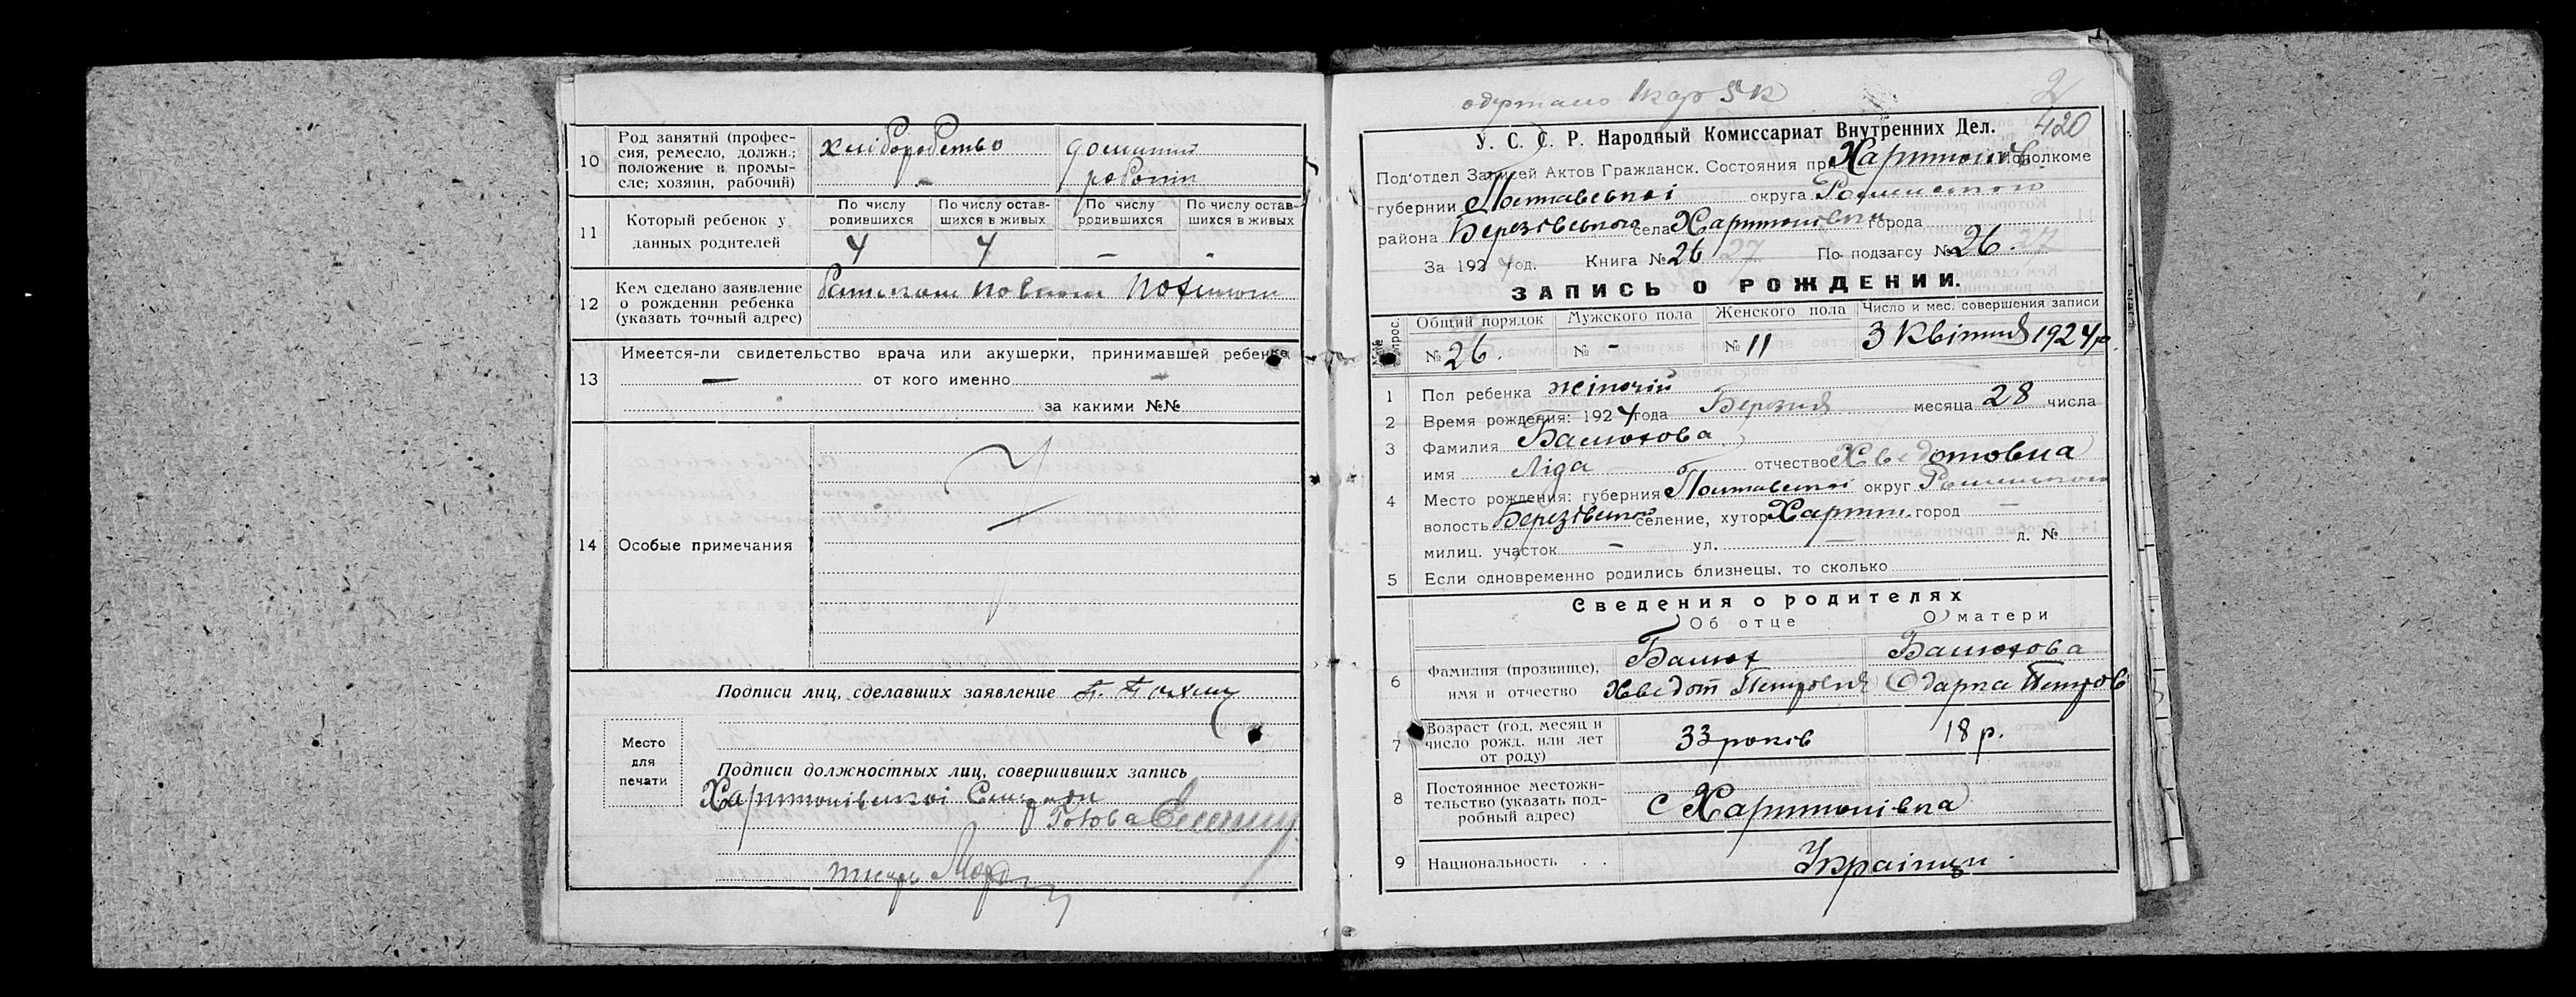 10
Род занятий (профес-
сия, ремесло, должн.;
положение в промы-
сле; хозяин, рабочий)
хліборобство
домашні
роботи
11
Который ребенок у
данных родителей
По числу
родившихся
По числу остав-
шихся в живых
По числу
родившихся
По числу остав-
шихся в живых
4 4 – -
12
Кем сделано заявление
о рождении ребенка
(указать точный адрес)
13
Имеется-ли свидетельство врача или акушерки, принимавшей ребенка
— от кого именно —
за какими №№
14
Особые примечания
Подписи лиц, сделавших заявление
Место
для
печати
Подписи должностных лиц, совершивших запись
Харитонівської Сельради
Голова
писарь
одержано
2
420
У. С. С. Р. Народный Комиссариат Внутренних Дел.
Под'отдел Записей Актов Гражданск. Состояния при Харитонів. исполкоме
губернии Полтавської округа Роменського
района Березівського села Харитонівка города
За 1924 год. Книга № 26 27 По подзагсу № 26. 27
ЗАПИСЬ О РОЖДЕНИИ.
№№ вопрос.
Общий порядок
Мужского пола
Женского пола
Число и мес. совершения записи
№ 26. № - № 11 3 Квітня 1924 р.
1 Пол ребенка жіночій
2 Время рождения: 1924 года Березня месяца 28 числа
3 Фамилия Балюхова
имя Ліда отчество Хведотовна
4 Место рождения: губерния Полтавської округ Роменского
волость Березівської селение, хутор Харитон. город —
милиц. участок – ул. — д. №
5 Если одновременно родились близнецы, то сколько
Сведения о родителях
Об отце О матери
6
Фамилия (прозвище),
имя и отчество
Балюх
Хведот Петрович
Балюхова
Одарка Петров
7
Возраст (год, месяц и
число рожд. или лет
от роду)
33 років
18 р.
8
Постоянное местожи-
тельство (указать под-
робный адрес)
С Харитонівка
9 Национальность . . Українци.